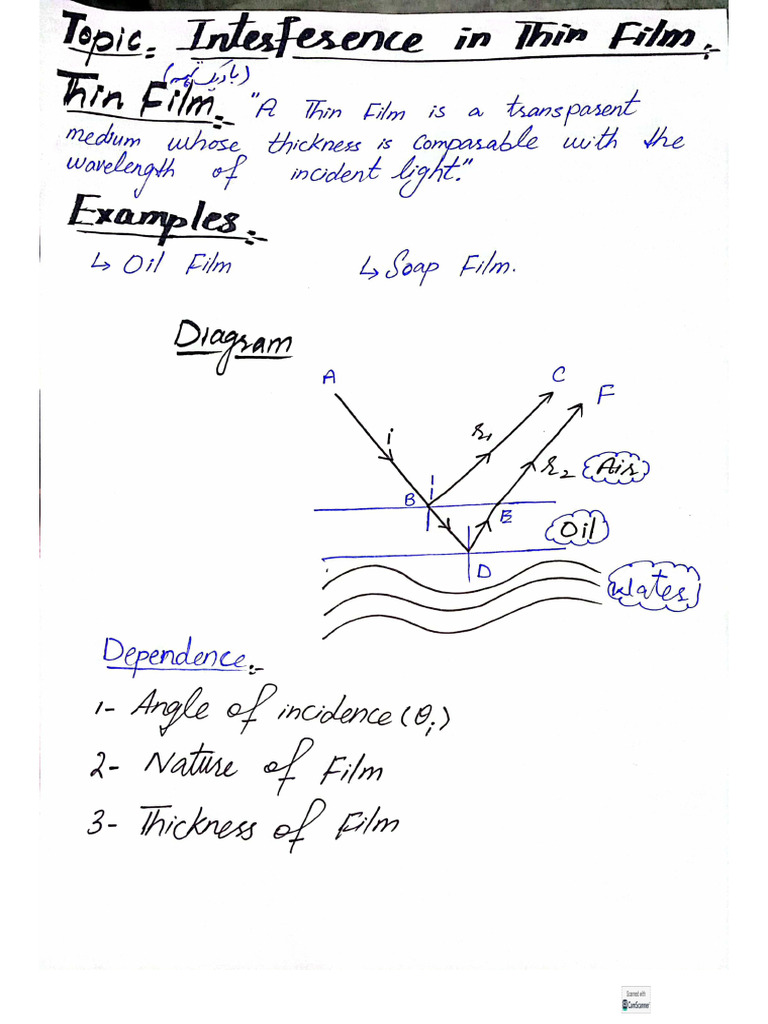 Topic:- Interference in Thin Film:-
(باریک تہہ)
Thin Film:- "A Thin Film is a transparent
medium whose thickness is comparable with the
wavelength of incident light."
Examples:-
↳ Oil Film ↳ Soap Film.
Diagram
A C F
i r₁
r₂ Air
B E
Oil
D Water
Dependence:-
1- Angle of incidence (θi)
2- Nature of Film
3- Thickness of Film
Scanned with
CS CamScanner